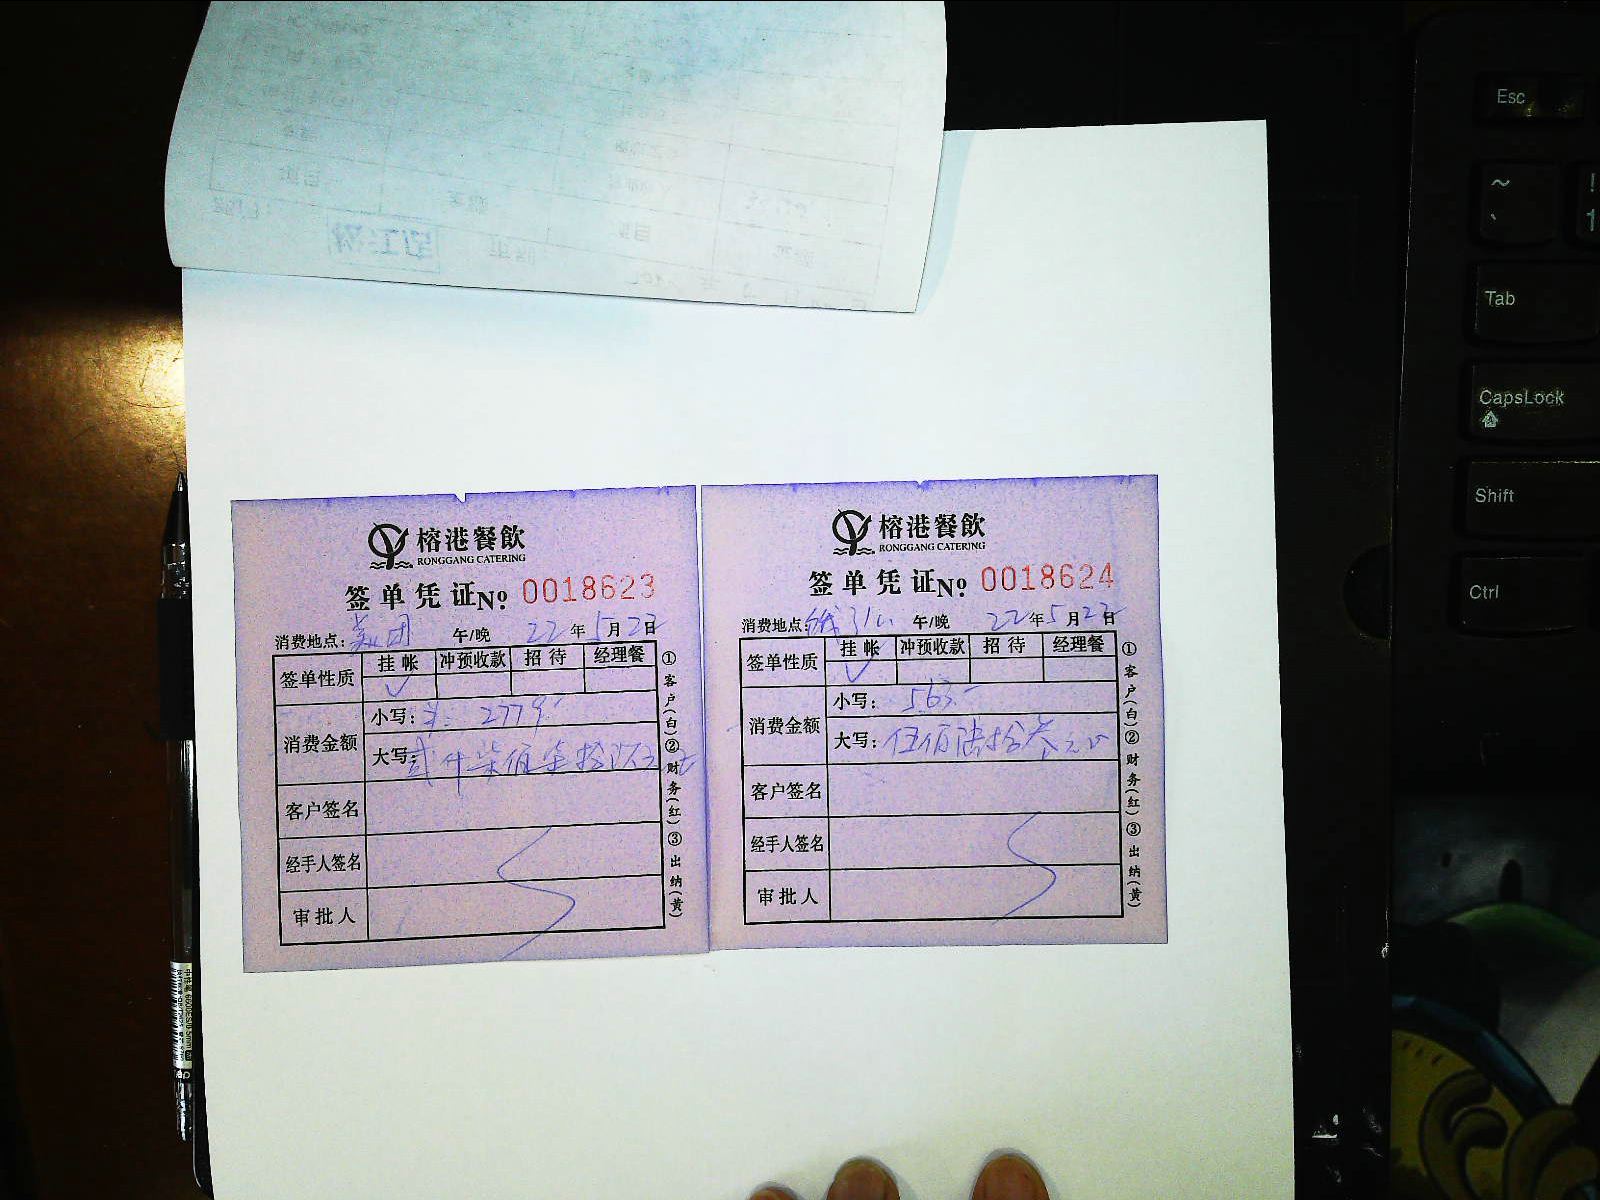 榕港餐飲
RONGGANG CATERING
签单凭证No. 0018623
消费地点: 美团 午/晚 22年5月22日
签单性质 挂帐 冲预收款 招待 经理餐
✓
消费金额 小写: 2779.-
大写: 贰仟柒佰柒拾玖元正
客户签名
经手人签名
审批人
①客户(白)②财务(红)③出纳(黄)
榕港餐飲
RONGGANG CATERING
签单凭证No. 0018624
消费地点: 午/晚 22年5月22日
签单性质 挂帐 冲预收款 招待 经理餐
✓
消费金额 小写: 563.-
大写: 伍佰陆拾叁元正
客户签名
经手人签名
审批人
①客户(白)②财务(红)③出纳(黄)
Esc
~
!
1
Tab
CapsLock
Shift
Ctrl